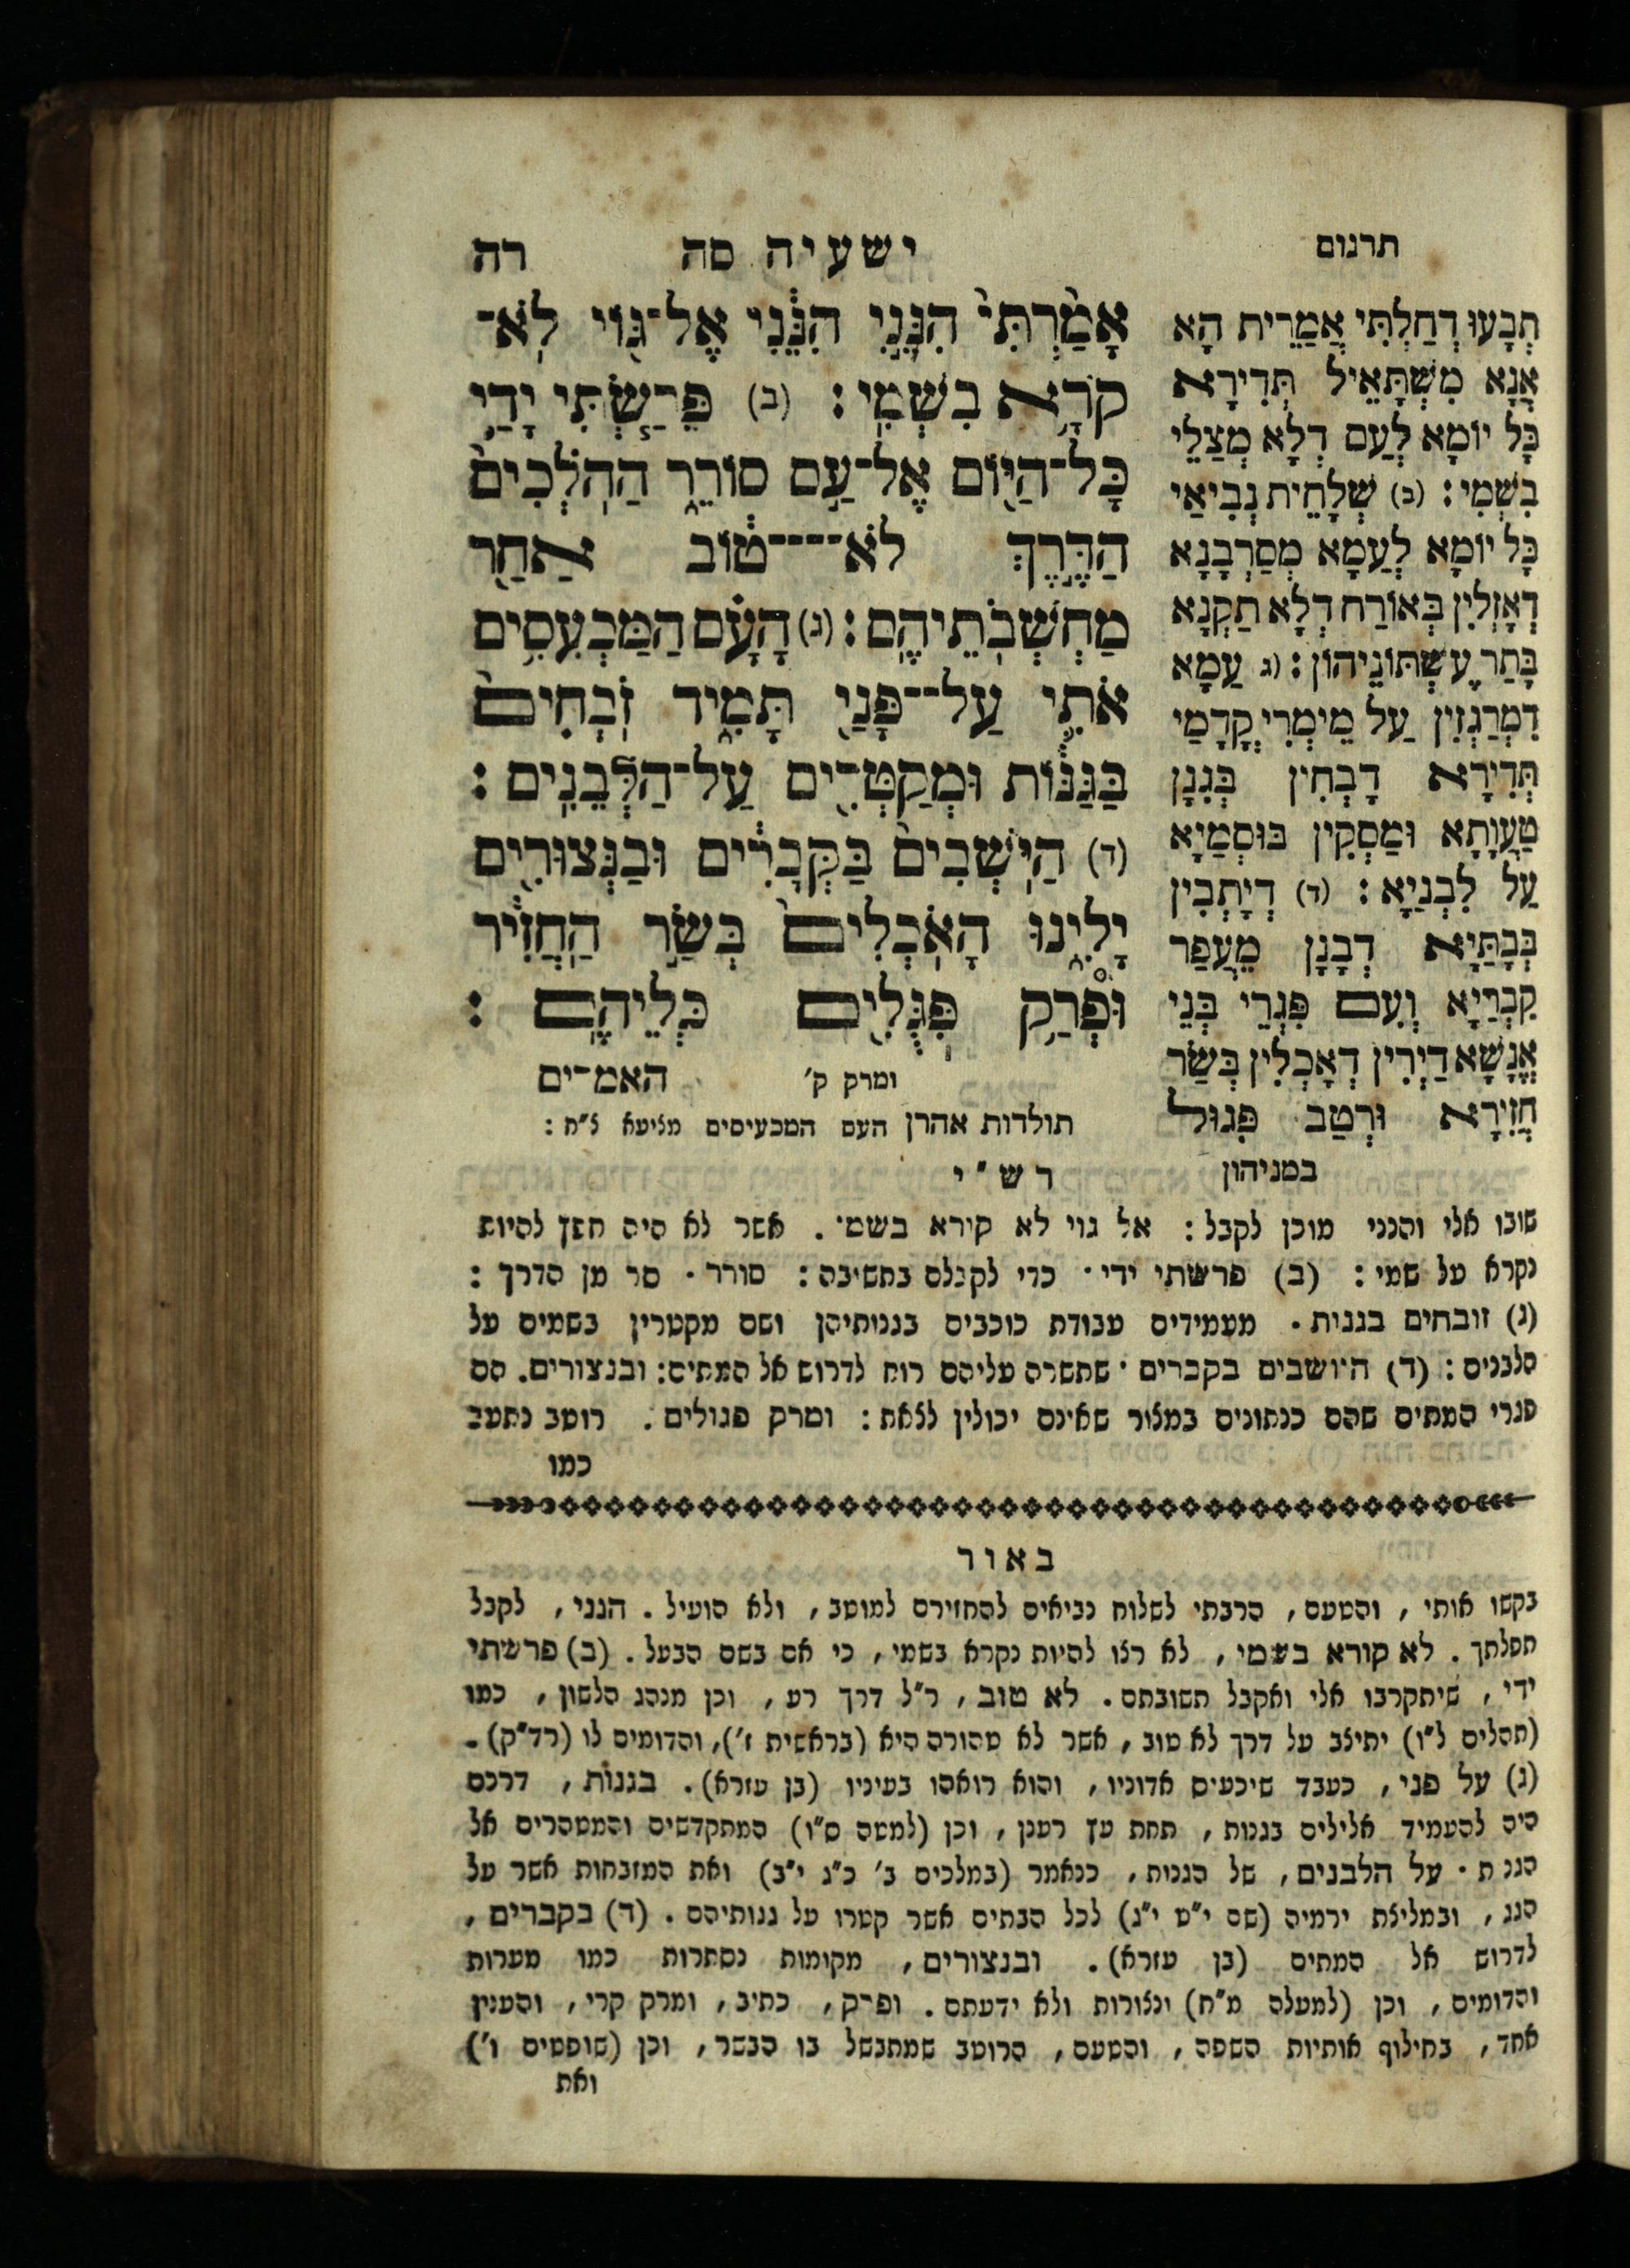 תרגום
ישעיה סה רה
תְבָעוּ דְחַלְתִּי אֲמָרֵית הָא
אֲנָא מִשְׁתָּאֵיל תְּדִירָא
כָּל יוֹמָא לְעַם דְלָא מְצַלֵי
בִשְׁמִי׃ (ב) שְׁלָחֵית נְבִיאַי
כָּל יוֹמָא לְעַמָא מְסַרְבָנָא
דְאָזְלִין בְּאוֹרַח דְלָא תַקְנָא
בָּתַר עֶשְׁתּוֹנֵיהוֹן׃ (ג עַמָא
דִמְרַגְזִין עַל מֵימְרִי קֳדָמַי
תְּדִירָא דָבְחִין בְּגִנָן
טַעֲוָתָא וּמַסְקִין בּוּסְמַיָא
עַל לִבְנַיָא׃ (ד) דְיָתְבִין
בְּבָתַּיָא דְבָנָן מֵעֲפַר
קִבְרַיָא וְעִם פִּגְרֵי בְּנֵי
אֲנָשָׁא דַיְרִין דְאָכְלִין בְּשַׂר
חֲזִירָא וּרְטַב פִּגּוּל
במניהון
אָמַ֙רְתִּי֙ הִנֵּ֣נִי הִנֵּ֔נִי אֶל־גּ֖וֹי לֹֽא־
קֹרָ֥א בִשְׁמִֽי׃ (ב) פֵּרַ֧שְׂתִּי יָדַ֛י
כָּל־הַיּ֖וֹם אֶל־עַ֣ם סוֹרֵ֑ר הַהֹֽלְכִים֙
הַדֶּ֣רֶךְ לֹא־־־־ט֔וֹב אַחַ֖ר
מַחְשְׁבֹֽתֵיהֶֽם׃ (ג) הָעָ֗ם הַמַּכְעִסִ֥ים
אֹתִ֛י עַל־־פָּנַ֖י תָּמִ֑יד זֹֽבְחִים֙
בַּגַּנּ֔וֹת וּֽמְקַטְּרִ֖ים עַל־הַלְּבֵנִֽים׃
(ד) הַיֹּֽשְׁבִים֙ בַּקְּבָרִ֔ים וּבַנְּצוּרִ֖ים
יָלִ֑ינוּ הָאֹֽכְלִים֙ בְּשַׂ֣ר הַֽחֲזִ֔יר
וּפְרַ֥ק פִּגֻּלִ֖ים כְּלֵיהֶֽם׃
ומרק ק׳ האמ־ים
תולדות אהרן העם המכעיסים מליעא ל״ח׃
רש״י
שובו אלי והנני מוכן לקבל׃ אל גוי לא קורא בשמי. אשר לא היה חפץ להיות
נקרא על שמי׃ (ב) פרשתי ידי. כדי לקבלם בתשיבה׃ סורר. סר מן הדרך׃
(ג) זובחים בגנות. מעמידים עבודת כוכבים בגנותיהן ושם מקטרין בשמים על
הלבנים׃ (ד) היושבים בקברים. שתשרה עליהם רוח לדרוש אל המתים׃ ובנצורים. הם
פגרי המתים שהם כנתונים במצור שאינם יכולין לצאת׃ ומרק פגולים. רוטב נתעב
כמו
באור
בקשו אותי, והטעם, הרבתי לשלוח נביאים להחזירם למוטב, ולא הועיל. הנני, לקבל
תפלתך. לא קורא בשמי, לא רצו להיות נקרא בשמי, כי אם בשם הבעל. (ב) פרשתי
ידי, שיתקרבו אלי ואקבל תשובתם. לא טוב, ר״ל דרך רע, וכן מנהג הלשון, כמו
(תהלים ל״ו) יתיצב על דרך לא טוב, אשר לא טהורה היא (בראשית ז׳), והדומים לו (רד״ק).
(ג) על פני, כעבד שיכעים אדוניו, והוא רואהו בעיניו (בן עזרא). בגנות, דרכם
היה להעמיד אלילים בגנות, תחת עץ רענן, וכן (למטה ס״ו) המתקדשים והמטהרים אל
הגנת. על הלבנים, של הגנות, כנאמר (במלכים ב׳ כ״ג י״ב) ואת המזבחות אשר על
הגג, ובמליצת ירמיה (שם י״ט י״ג) לכל הבתים אשר קטרו על גגותיהם. (ד) בקברים,
לדרוש אל המתים (בן עזרא). ובנצורים, מקומות נסתרות כמו מערות
והדומים, וכן (למעלה מ״ח) ונצורות ולא ידעתם. ופרק, כתיב, ומרק קרי, והענין
אחד, בחילוף אותיות השפה, והטעם, הרוטב שמתבשל בו הבשר, וכן (שופטים ו׳)
ואת